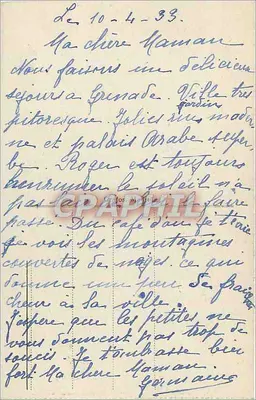 Le 10-4-33.
Ma chère Maman
Nous faisons un délicieux
séjour à Grenade Ville très
jardin
pitoresque. Jolies rues moder
ne et palais Arabe super
be. Roger est toujours
enrhumer le soleil n'a
pas faire
passe. Du café d'où je t'écris
je vois les montagnes
couvertes de neiges ce qui
donne un peu de fraî
cheur à la ville.
J'espère que les petites ne
vous donnent pas trop de
soucis. Je t'embrasse bien
fort Ma chère Maman.
Germaine
CPAPHIL